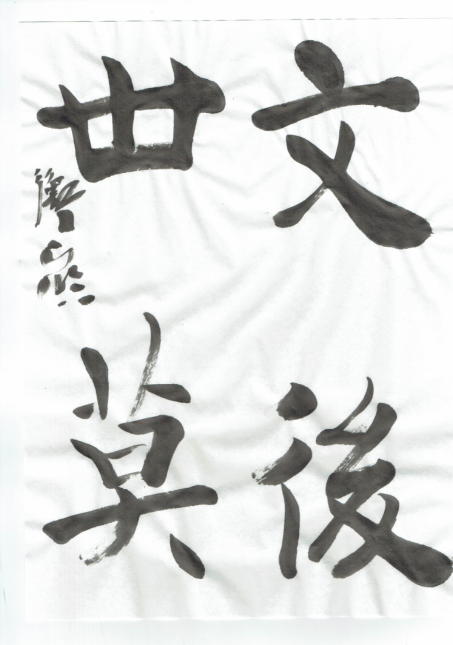 文後
世莫